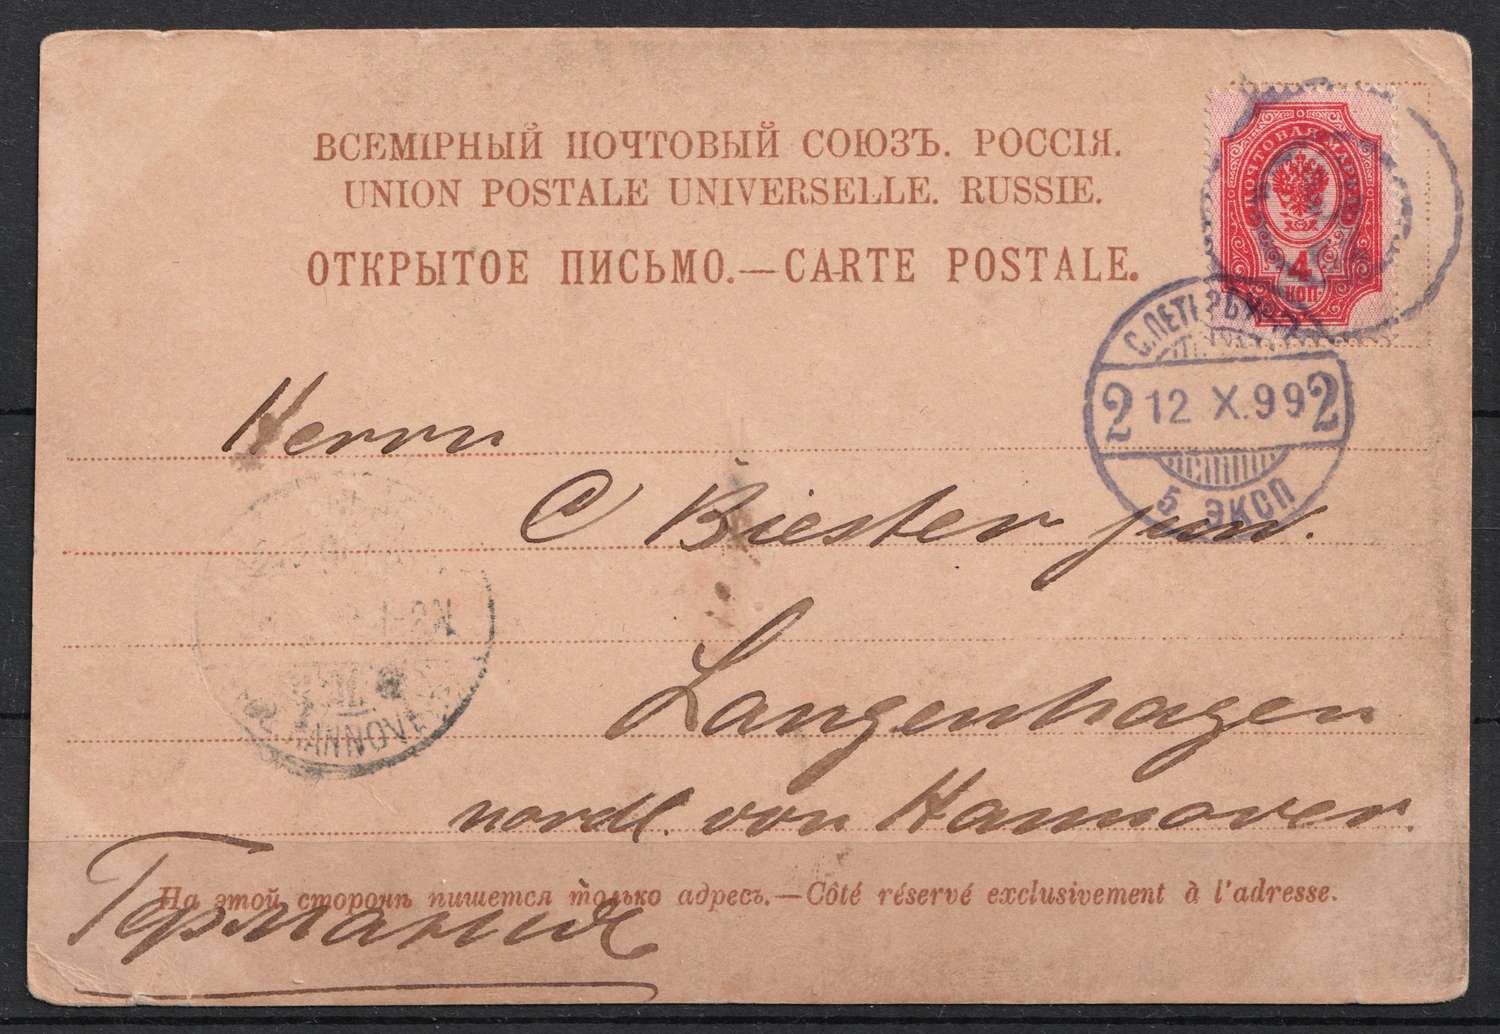 ВСЕМІРНЫЙ ПОЧТОВЫЙ СОЮЗЪ. РОССІЯ.
UNION POSTALE UNIVERSELLE. RUSSIE.
ОТКРЫТОЕ ПИСЬМО.—CARTE POSTALE.
ПОЧТОВАЯ МАРКА
4
КОП.
С.ПЕТЕРБУРГЪ
2 12 X.99 2
5 ЭКСП
Herrn
C Biester jun.
Langenhagen
nordl. von Hannover.
HANNOVER
На этой сторонѣ пишется только адресъ.—Côté réservé exclusivement à l'adresse.
Германія